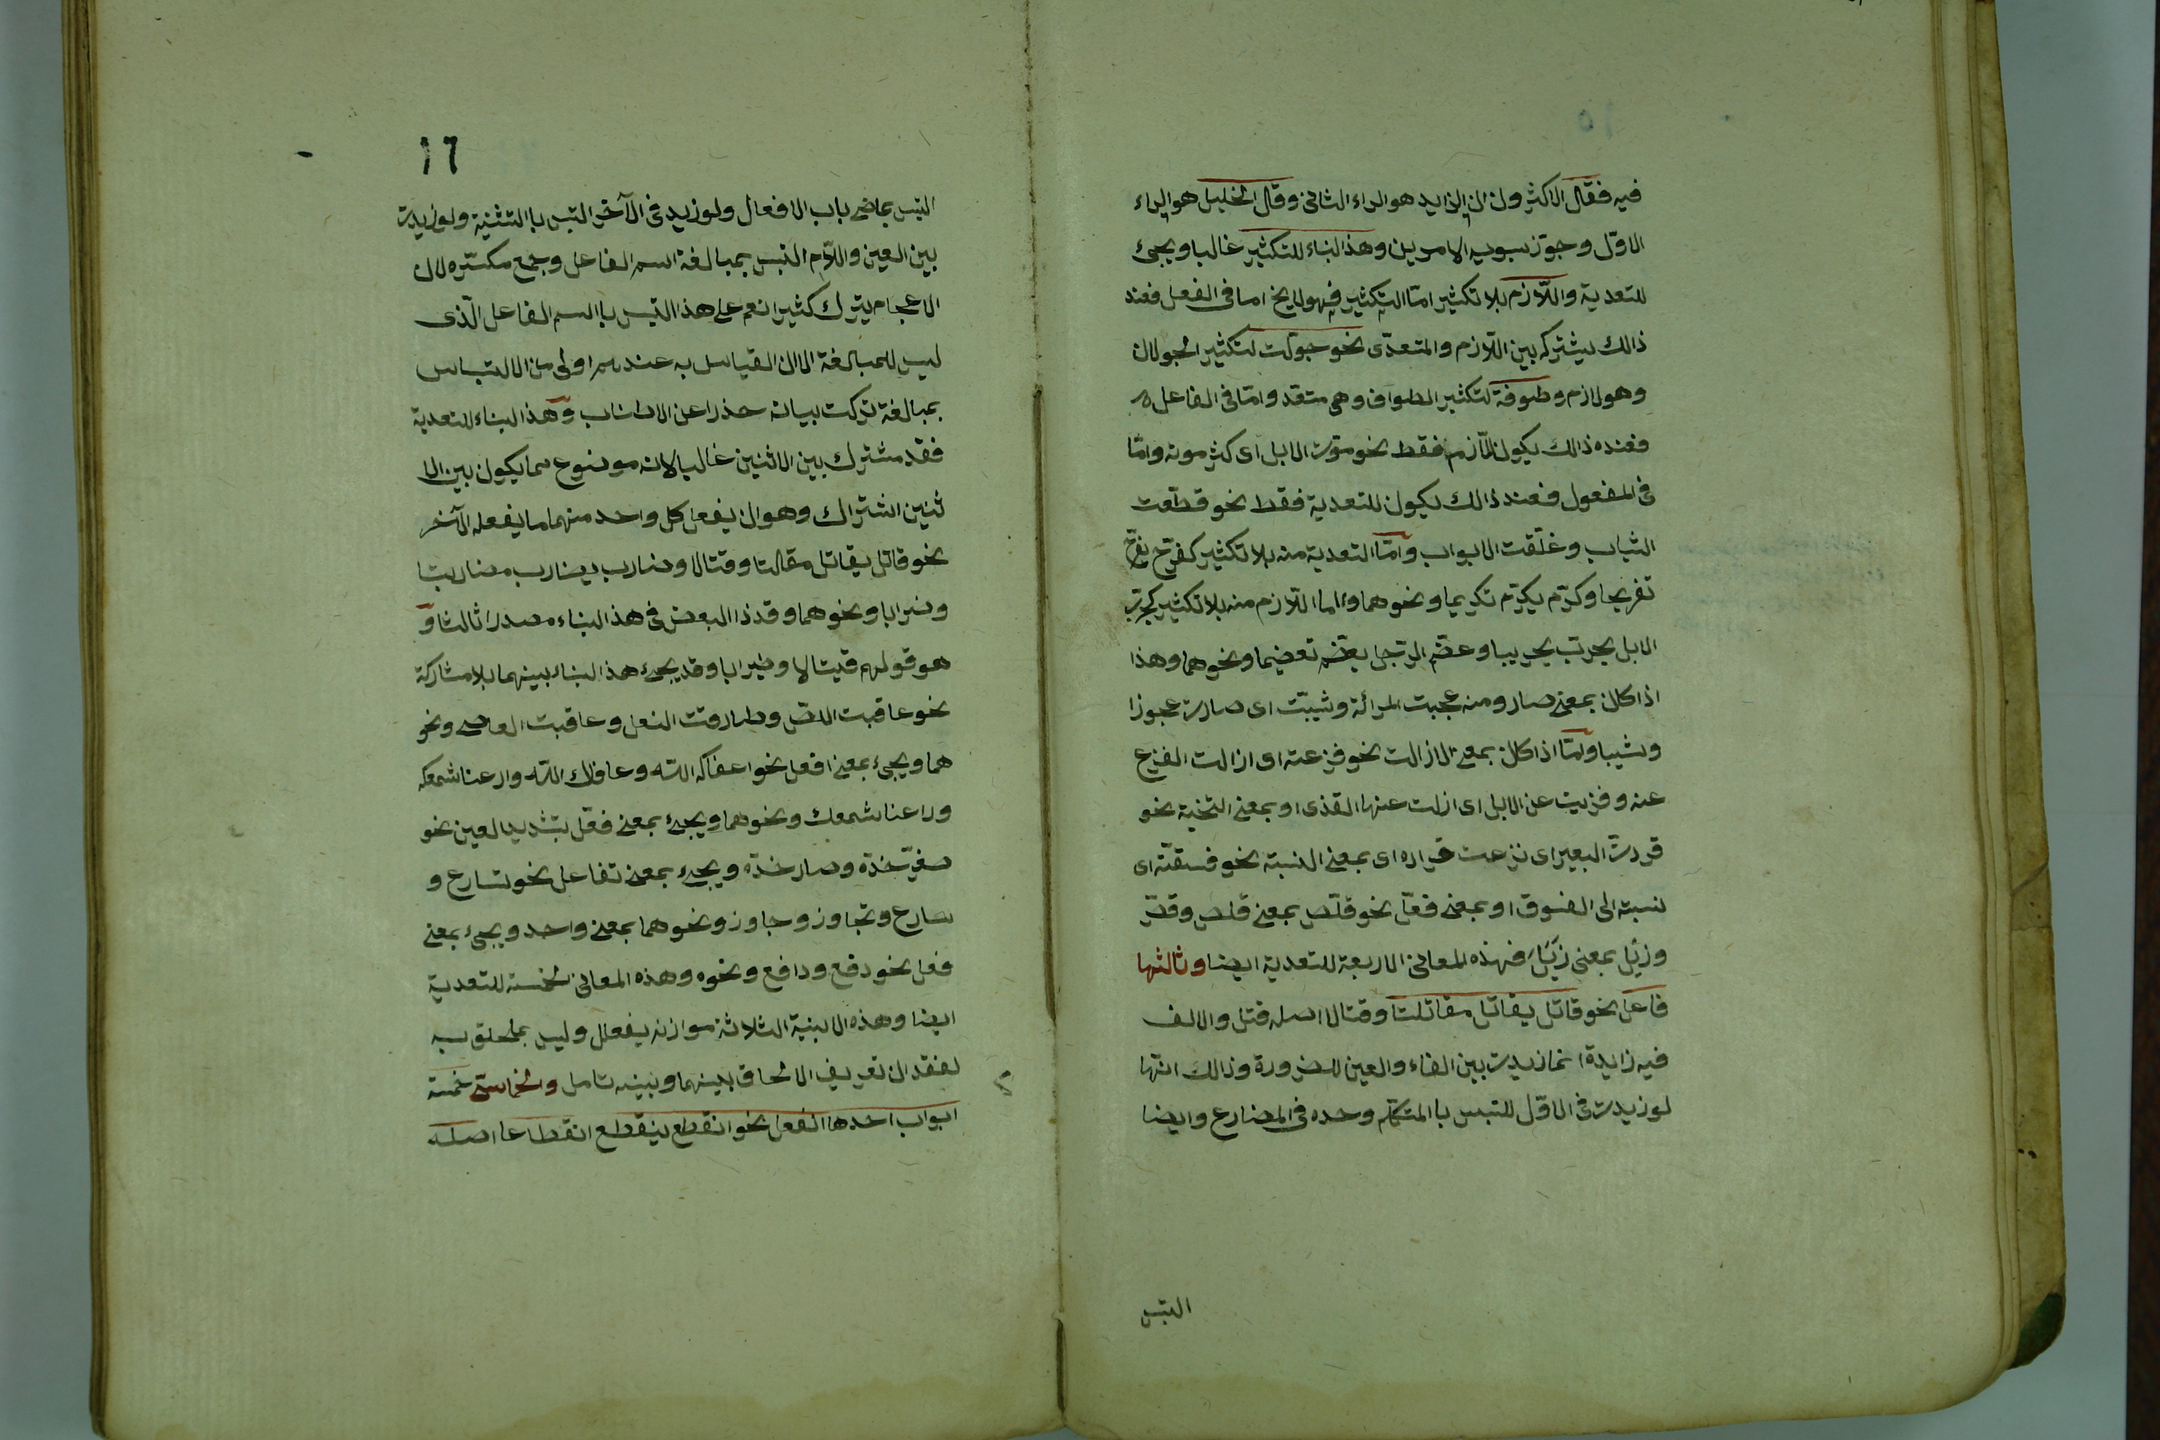 فيه فقال الاكثرون ان الزايد هو الراء الثانى وقال الخليل هو الراء
الاوّل وجوّز سبويه الامرين وهذا البناء للتكثير غالبا ويجئ
للتعدية واللّازم بلا تكثير امّا التكثير فهو لا يخ اما فى الفعل فعند
ذالك يشتركه بين اللّازم والمتعدّى نحو جوّلت لتكثير الجولان
وهو لازم وطوفة لتكثير الطواف وهى متعد وامّا فى الفاعل
فعنده ذالك يكون للّازم فقط نحو موّت الابل اى كثر موته وامّا
فى المفعول فعند ذالك يكون للتعدية فقط نحو قطّعت
الثياب وغلّقت الابواب وامّا التعدية منه بلا تكثير كفرّح يفرّح
تفريحا وكرّم يكرّم تكريما ونحوهما واما اللّازم منه بلا تكثير كجرّب
الابل يجرّب تجريبا وعضّم الرجل يعضّم تعضيما ونحوهما وهذا
اذا كان بمعنى صار ومنه عجبت المرائة وشيبّت اى صارت عجوزا
وشيبا وامّا اذا كان بمعنى الازالت نحو فزعته اى ازالت الفزع
عنه وقزيت عن الابل اى ازلت عنها القذى او بمعنى التخية نحو
قردت البعير اى نزعت قراده اى بمعنى النسبة نحو فسقّته اى
نسبته الى الفسوق او بمعنى فعل نحو قلّص بمعنى قلص وقدّر
وزيّل بمعنى زيَل فهذه المعانى الاربعة للتعدية ايضا وثالثها
فاعل نحو قاتل يقاتل مقاتلتا وقتالا اصله قتل والالف
فيه زايدة انما زيدت بين الفاء والعين للضرورة وذالك انّها
لو زيدت فى الاوّل للتبس با المتكلم وحده فى المضارع وايضا
التبس
١٦
التبس بماضى باب الافعال ولو زيد فى الآخر التبس با التثنية ولو زيدت
بين العين واللّام التبس بمبالغة اسم الفاعل وجمع مكسّره لان
الاعجام يترك كثيرا نعم على هذا التبس با اسم الفاعل الّذى
ليس للمبالغة الا ان القياس به عندهم اولى من الالتباس
بمبالغة تركت بيانه حذرا عن الاطناب وهذا البناء للتعدية
فقد مشترك بين الاثنين غالبا لانه موضوع مما يكون بين الا
ثنين اشتراك وهو ان يفعل كل واحد منهما ما يفعله الآخر
نحو قاتل يقاتل مقالتا وقتالا وضارب يضارب مضاربتا
وضرابا ونحوهما وقد ذا البعض فى هذا البناء مصدرا ثالثا و
هو قولهم قيتالا وضيرابا وقد يجئ هذا البناء بينهما بلا مشاركة
نحو عاقبت اللص وطارقت النعل وعاقبت العاصى ونحو
هما ويجئ بمعنى افعل نحو اعفاكه اللّه وعافاك اللّه وارعنا شمعكه
وراعنا شمعك ونحوهما ويجئ بمعنى فعّل بتشديد العين نحو
صغّر خدّه وصار خدّه ويجئ بمعنى تفاعل نحو تسارع و
سارع وتجاوز وجاوز ونحوهما بمعنى واحد ويجئ بمعنى
فعل نحو دفع ودافع ونحوه وهذه المعانى الخمسة للتعدية
ايضا وهذه الابنية الثلاثة موازنه يفعلل وليس بملحق به
لفقدان تعريف الالحاق بينهما وبينه تامل والخماسىّ خمسة
ابواب احدها انفعل نحو انقطع ينقطع انقطاعا اصله